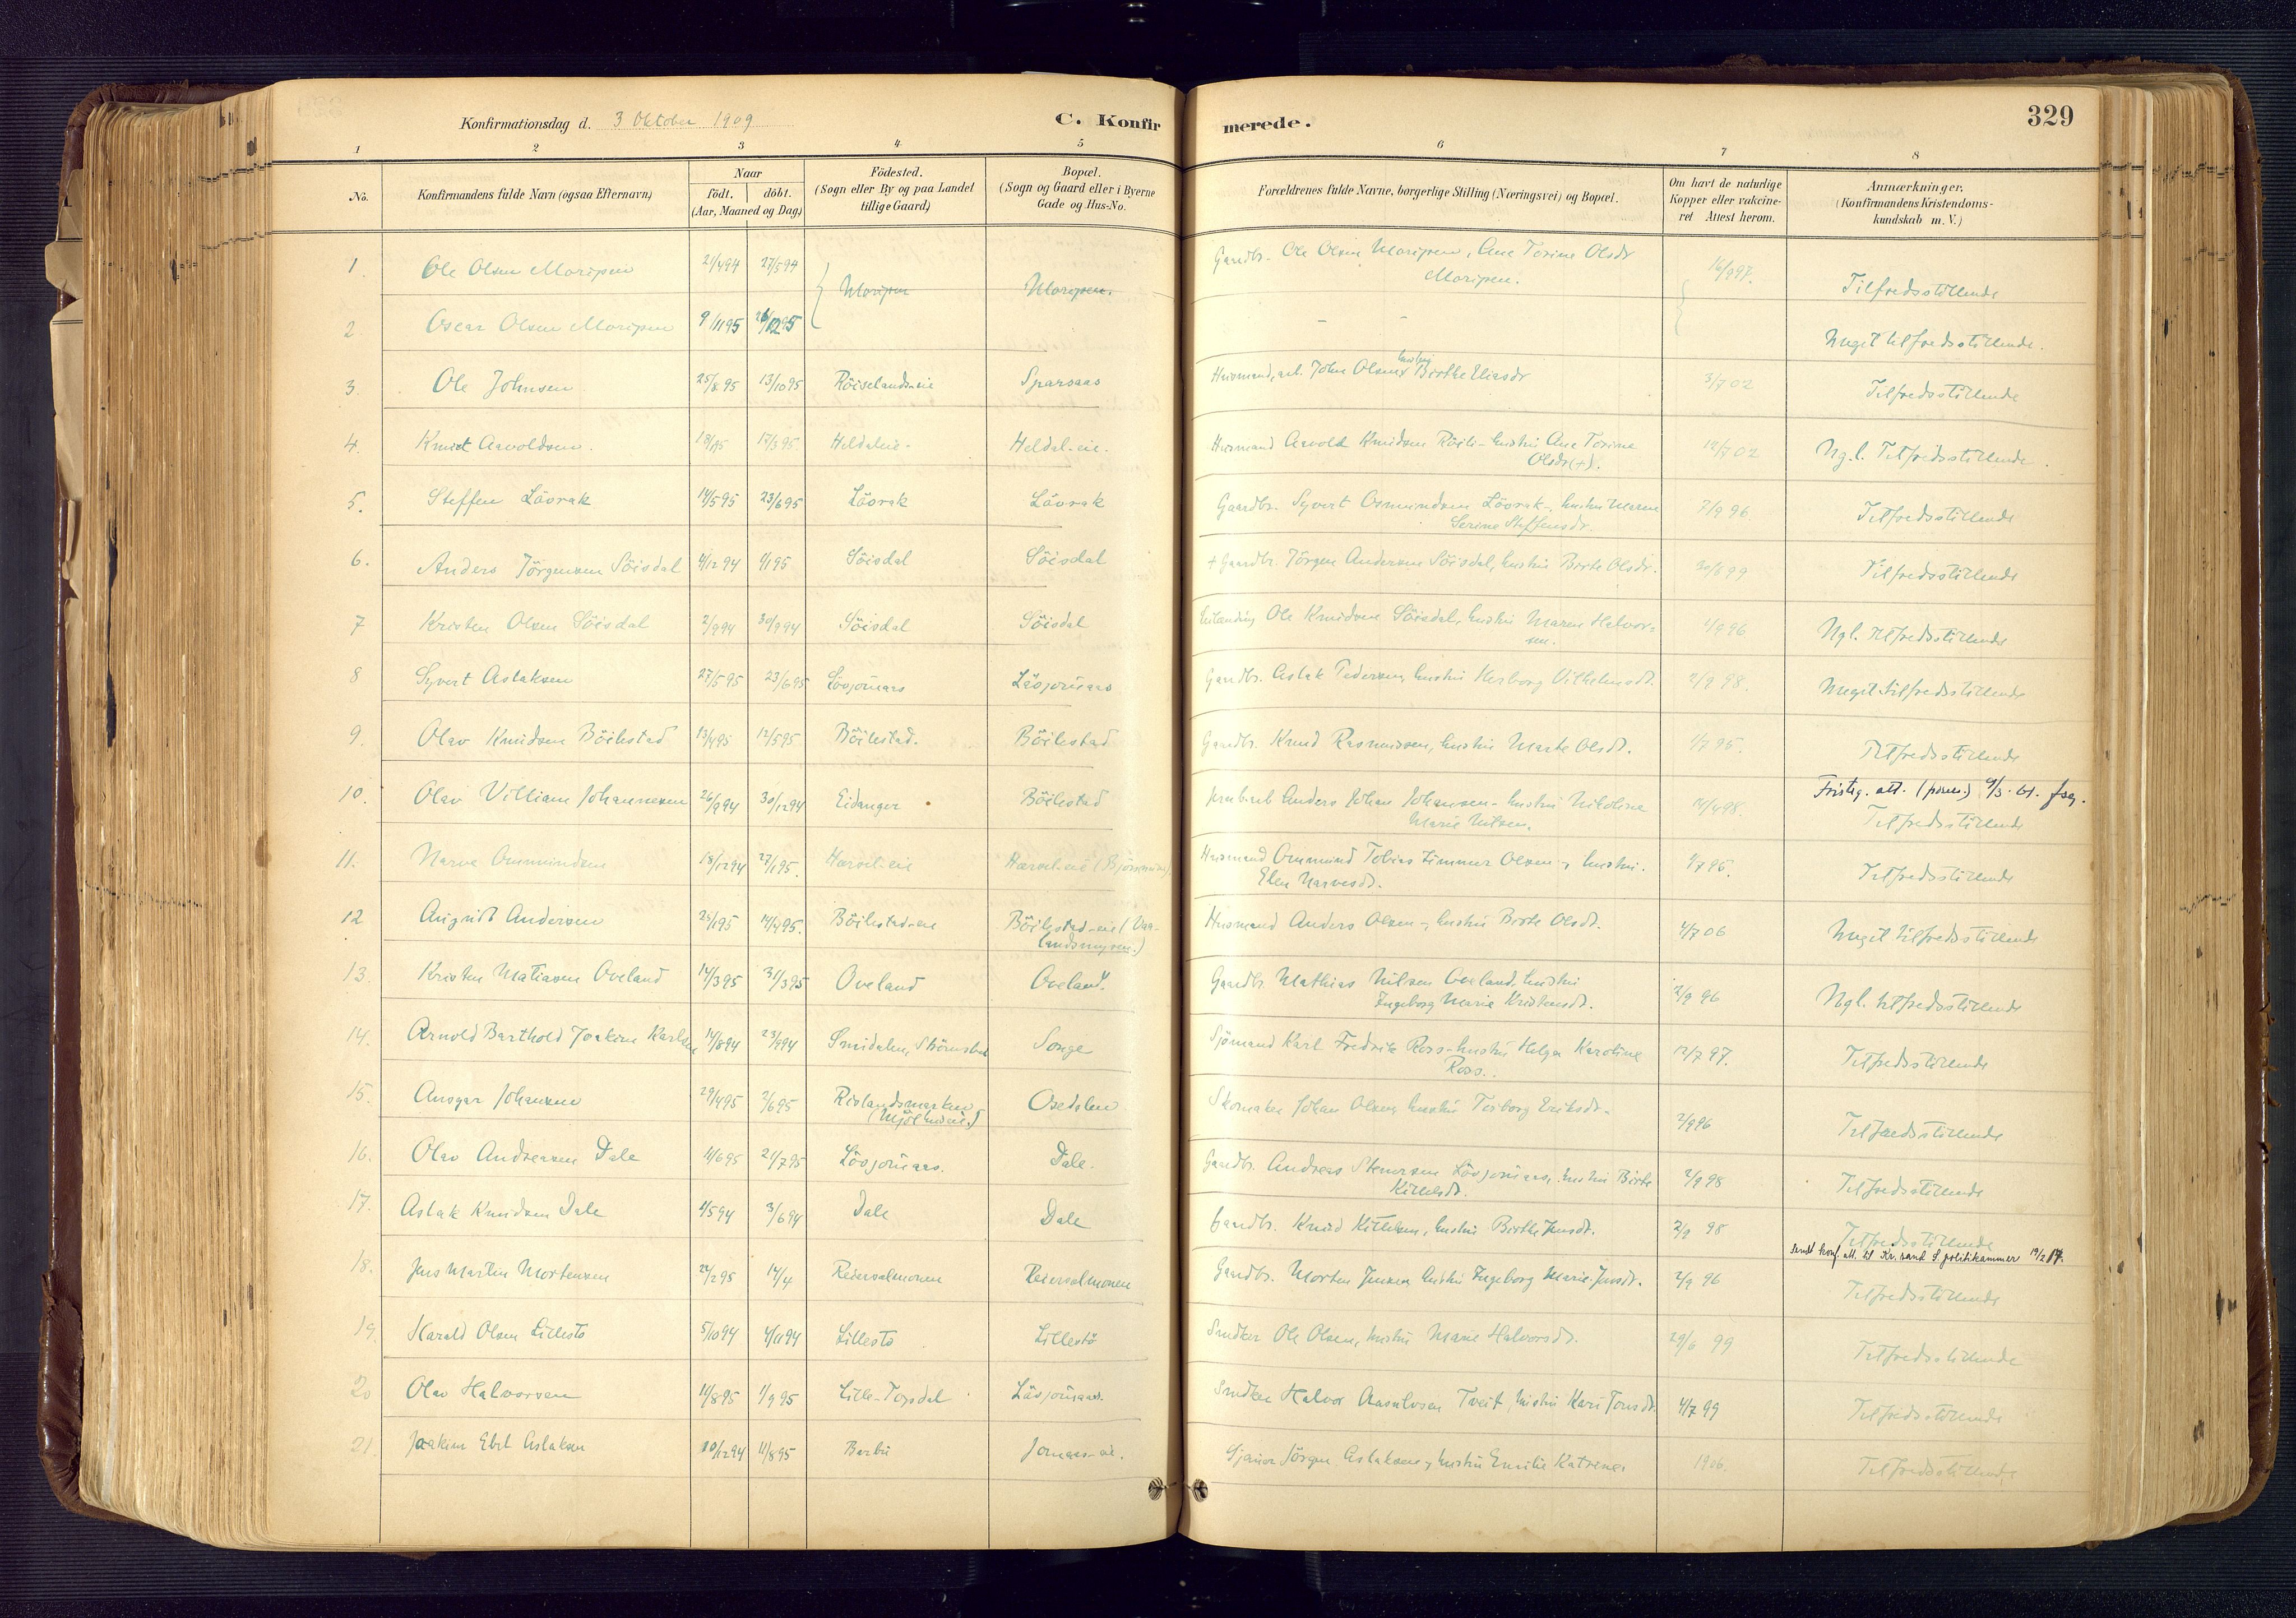 Konfirmationsdag d. 3 Oktober 1909
C. Konfirmerede.
329
1 2 3 4 5 6 7 8
No.
Konfirmandens fulde Navn (ogsaa Efternavn)
Naar
födt. döbt.
(Aar, Maaned og Dag)
Födested.
(Sogn eller By og paa Landet
tillige Gaard)
Bopæl.
(Sogn og Gaard eller i Byerne
Gade og Hus-No.
Forældrenes fulde Navne, borgerlige Stilling (Næringsvei) og Bopæl.
Om havt de naturlige
Kopper eller vakcine-
ret Attest herom.
Anmærkninger,
(Konfirmandens Kristendoms-
kundskab m. V.)
1. Ole Olsen Moripen 21/4 94 27/5 94 Moripen Moripen. Gaardbr. Ole Olsen Moripen, Ane Torine Olsdr
Moripen. Tilfredsstillende
2. Oscar Olsen Moripen 9/11 95 - - Meget tilfredsstillende.
3. Ole Johnsen 25/8 95 13/10 95 Röiselands-eie Sparsaas Husmand, arb. John Olsen, hustru Birthe Eliasdr 3/7 02 Tilfredsstillende
4. Knut Aavoldsen. 17/3 95 Heldaleie. Heldal-eie. Husmand Aavold Knudsen Röili- hustru Ane Torine
Olsdr (+). 12/7 02 Ng.l. Tilfredsstillende.
5. Steffen Lövrak 14/5 95 23/6 95 Lövrak Lövrak Gaardbr. Syvert Osmundsen Lövrak-, hustru Maren
Serine Steffensdr. 7/9 96 Tilfredsstillende
6. Anders Jörgensen Söisdal 4/12 94 1/1 95 Söisdal Söisdal + Gaardbr. Jörgen Andersen Söisdal, hustru Berte Olsdr. Tilfredsstillende
7 Kristen Olsen Söisdal 2/9 94 30/9 94 Söisdal Söisdal Ole Knudsen Söisdal, hustru Maren Halvor=
sen. 4/9 96 Ngl. tilfredsstillende
8 Syvert Aslaksen 27/5 95 23/6 95 Lövjomaas Lövjomaas Gaardbr. Aslak Pedersen, hustru Herborg Vilhelmsdt. 2/9 98. Meget tilfredsstillende
9. Olav Knudsen Böilestad 13/4 95 12/5 95 Böilestad. Böilestad Gaardbr. Knud Rasmussen, hustru Marte Olsdt. 1/7 95. Tilfredsstillende
10. Olav Villiam Johannesen 26/9 94 30/12 94 Eidanger Böilestad Anders Johan Johansen- hustru Nikoline
Marie Nilsen. 14/4 98. Tilfredsstillende
11. Narve Ommundsen 18/12 94 27/1 95. Harvel-eie Harvel-eie Husmand Ommund Tobias Zimmer Olsen-, hustru.
Elen Narvesdt. 1/7 95. Tilfredsstillende
12 Andersen 25/1 95 14/4 95. Böilestad-eie Böilestad-eie (Vaa-
landsmyren.) Husmand Anders Olsen-, hustru Birte Olsdt. 4/7 06 Meget tilfredsstillende
13. Kristen Matiasen Oveland 14/3 95 31/3 95 Oveland Oveland. Gaardbr. Mathias Nilsen Oveland, hustru
Ingeborg Marie Kristensdt. 2/9 96 Ngl. tilfredsstillende
14. Arnold Barthold Joakim Karlsen 14/8 94 23/9 94 Smidalen, Songe Sjömand Karl Fredrik Ross-hustru Helga Karoline
Ross. 12/7 97. Tilfredsstillende
15. Ansgar Johansen 29/4 95 2/6 95 Rislandsmarken Osedalen Skomaker Johan Olsen, hustru Torborg Eriksdt. 2/9 96 Tilfredsstillende
16. Olav Andreasen Dale 11/6 95 21/7 95 Lövjomaas. Dale. Gaardbr. Andreas Stenersen Lövjomaas, hustru Birte
Kittelsdt. 2/9 98 Tilfredsstillende
17. Aslak Knudsen Dale 1/5 94 3/6 94 Dale Dale Gaardbr. Knud Kittelsen, hustru Birthe Jensdt. 2/9 98 Tilfredsstillende
Sendt konf. att. til Kr.sand S politikammer 19/2 17.
18. Jens Martin Mortensen 24/2 95 14/4 Reiersølmonen Reiersølmonen Gaardbr. Morten Jensen, hustru Ingeborg Marie Jensdt. 2/9 96 Tilfredsstillende
19. Harald Olsen Lillestö 5/10 94 4/11 94 Lillestö Lillestö Snedker Ole Olsen, hustru Marie Halvorsdt. 29/6 99 Tilfredsstillende
20 Olav Halvorsen 11/8 95 1/9 95 Lille-Topdal Lövjomaas. Snedker Halvor Aasulvsen Tveit, hustru Kari Jonsdt. 4/7 99 Tilfredsstillende
21. Joakim Ebel Aslaksen 10/12 94 11/8 95 Barbu Jomaas-eie. Jörgen Aslaksen, hustru Emilie Katrine 1906. Tilfredsstillende